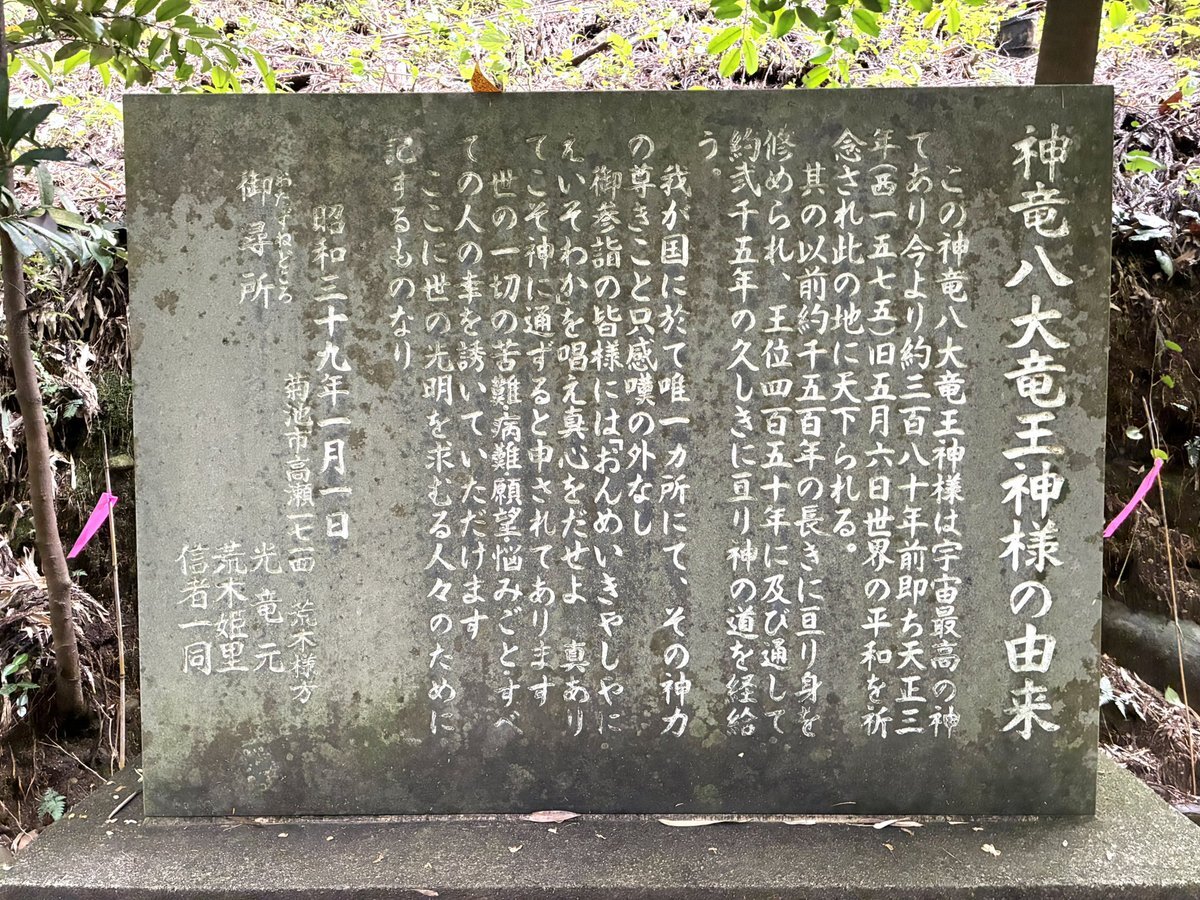 神竜八大竜王神様の由来
この神竜八大竜王神様は宇宙最高の神
であり今より約三百八十年前即ち天正三
年(西一五七五)旧五月六日世界の平和を祈
念され此の地に天下られる。
其の以前約千五百年の長きに亘り身を
修められ、王位四百五十年に及び通して
約弐千五年の久しきに亘り神の道を経給
う。
我が国に於て唯一カ所にて、その神力
の尊きこと只感嘆の外なし
御参詣の皆様には「おんめいきやしやに
えいそわか」を唱え真心をだせよ 真あり
てこそ神に通ずると申されてあります
世の一切の苦難病難願望悩みごとすべ
ての人の事を誘いていただけます
ここに世の光明を求むる人々のために
記するものなり
昭和三十九年一月一日
おたずねどころ
御尋所
菊池市高瀬一七一面 荒木様方
光竜元
荒木姫里
信者一同